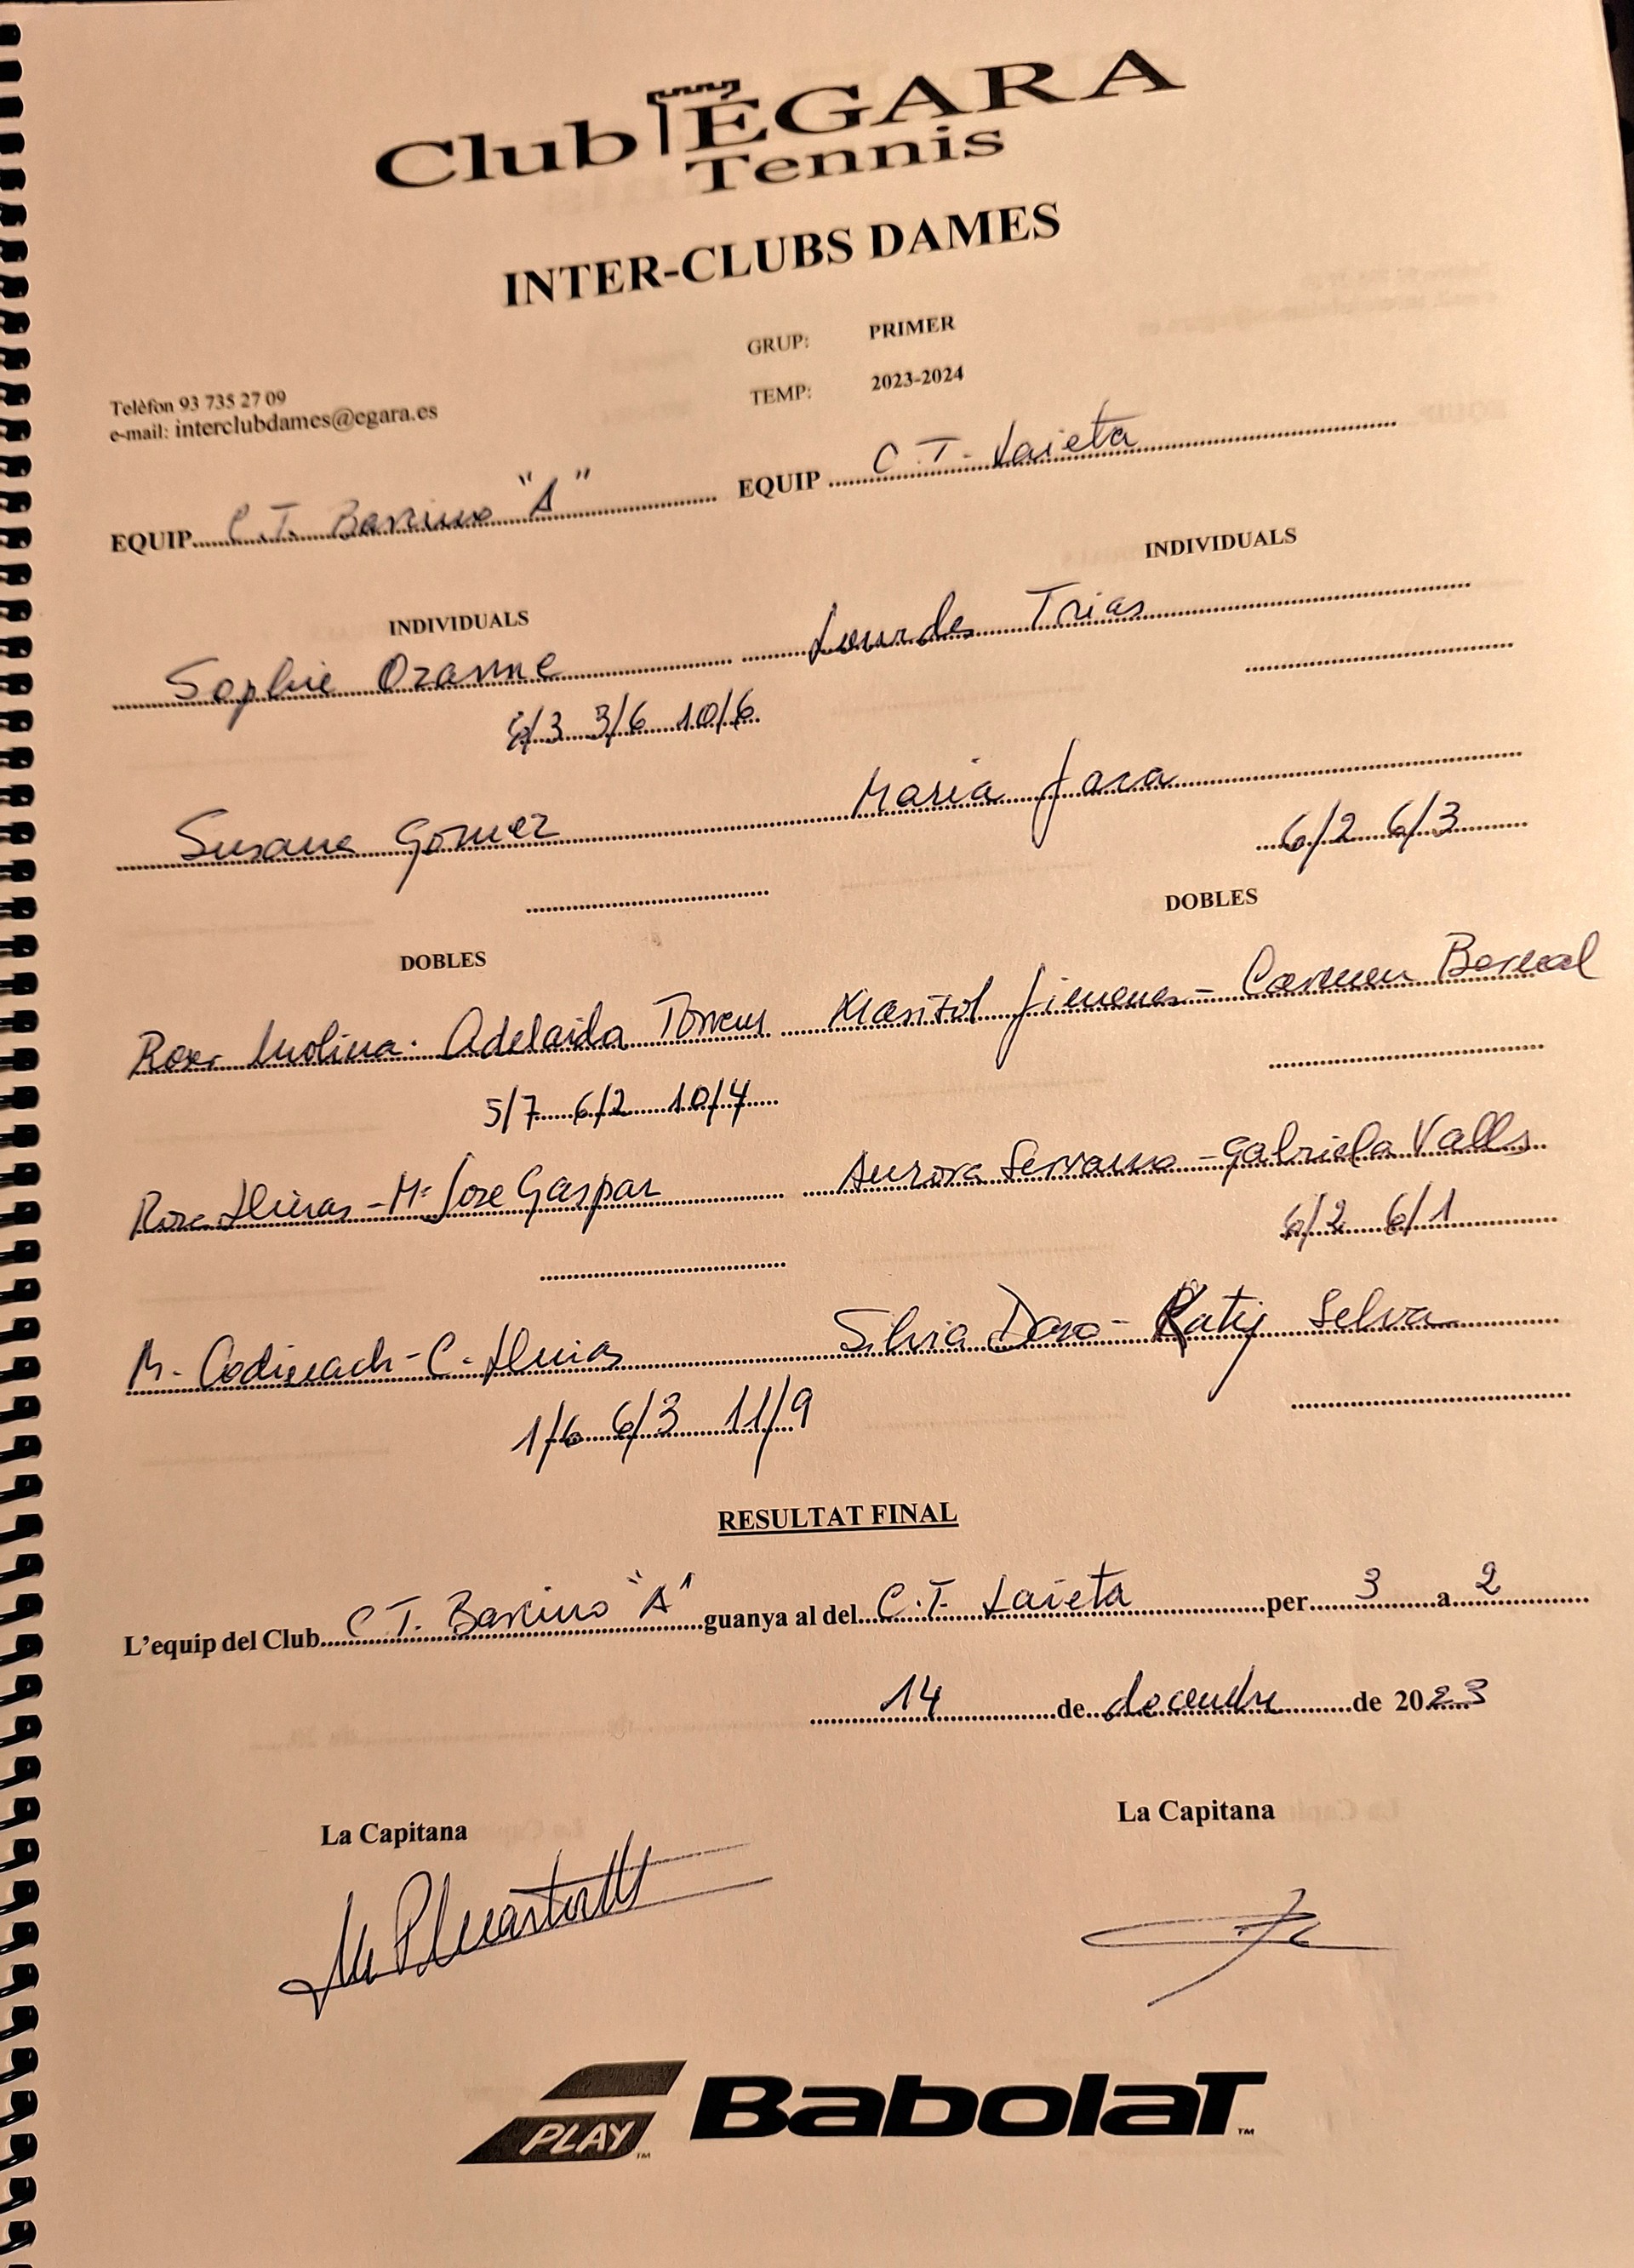 Club ÉGARA
Tennis
INTER-CLUBS DAMES
GRUP: PRIMER
TEMP: 2023-2024
Telèfon 93 735 27 09
e-mail: interclubdames@egara.es
EQUIP C.T. Barcino "A" EQUIP C.T. Laieta
INDIVIDUALS INDIVIDUALS
Sophie Ozanne Lourdes Trias
6/3 3/6 10/6
Susana Gómez Maria Jara
6/2 6/3
DOBLES DOBLES
Roser Molina - Adelaida Torrens Marisol Jimenez - Carmen Bernal
5/7 6/2 10/4
Rosa Lluras - Mª Jose Gaspar Aurora Serrano - Gabriela Valls
6/2 6/1
M. Codinach - C. Silvia - Katy Selva
1/6 6/3 11/9
RESULTAT FINAL
L'equip del Club C.T. Barcino "A" guanya al del C.T. Laieta per 3 a 2
14 de de 2023
La Capitana La Capitana
PLAY™ BabolaT™